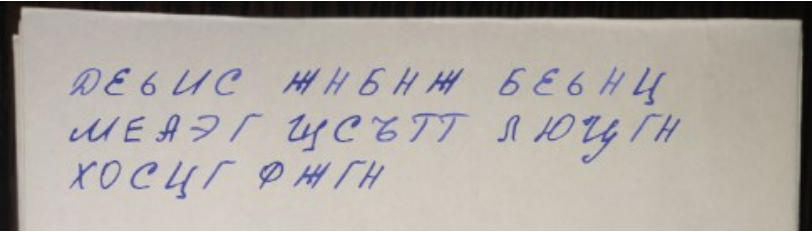 ДЕЬИС ЖНБНЖ БЕЬНЦ
МЕАЭГ ЩСЪТТ ЛЮЦГН
ХОСЦГ ФЖГН